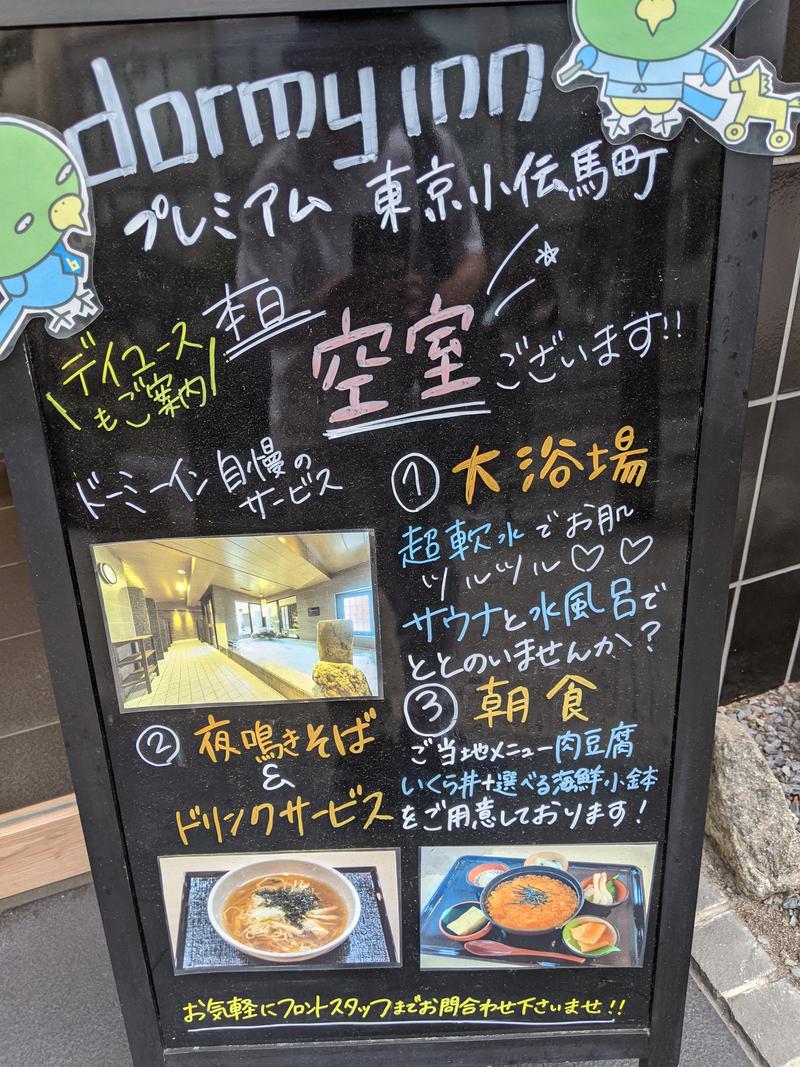 dormy inn
プレミアム 東京小伝馬町
本日
空室ございます!!
デイユース
もご案内
ドーミーイン自慢の
サービス
① 大浴場
超軟水でお肌
ツルツル♡♡
サウナと水風呂で
ととのいませんか?
② 夜鳴きそば
&
ドリンクサービス
③ 朝食
ご当地メニュー肉豆腐
いくら丼+選べる海鮮小鉢
をご用意しております!
お気軽にフロントスタッフまでお問合わせ下さいませ!!